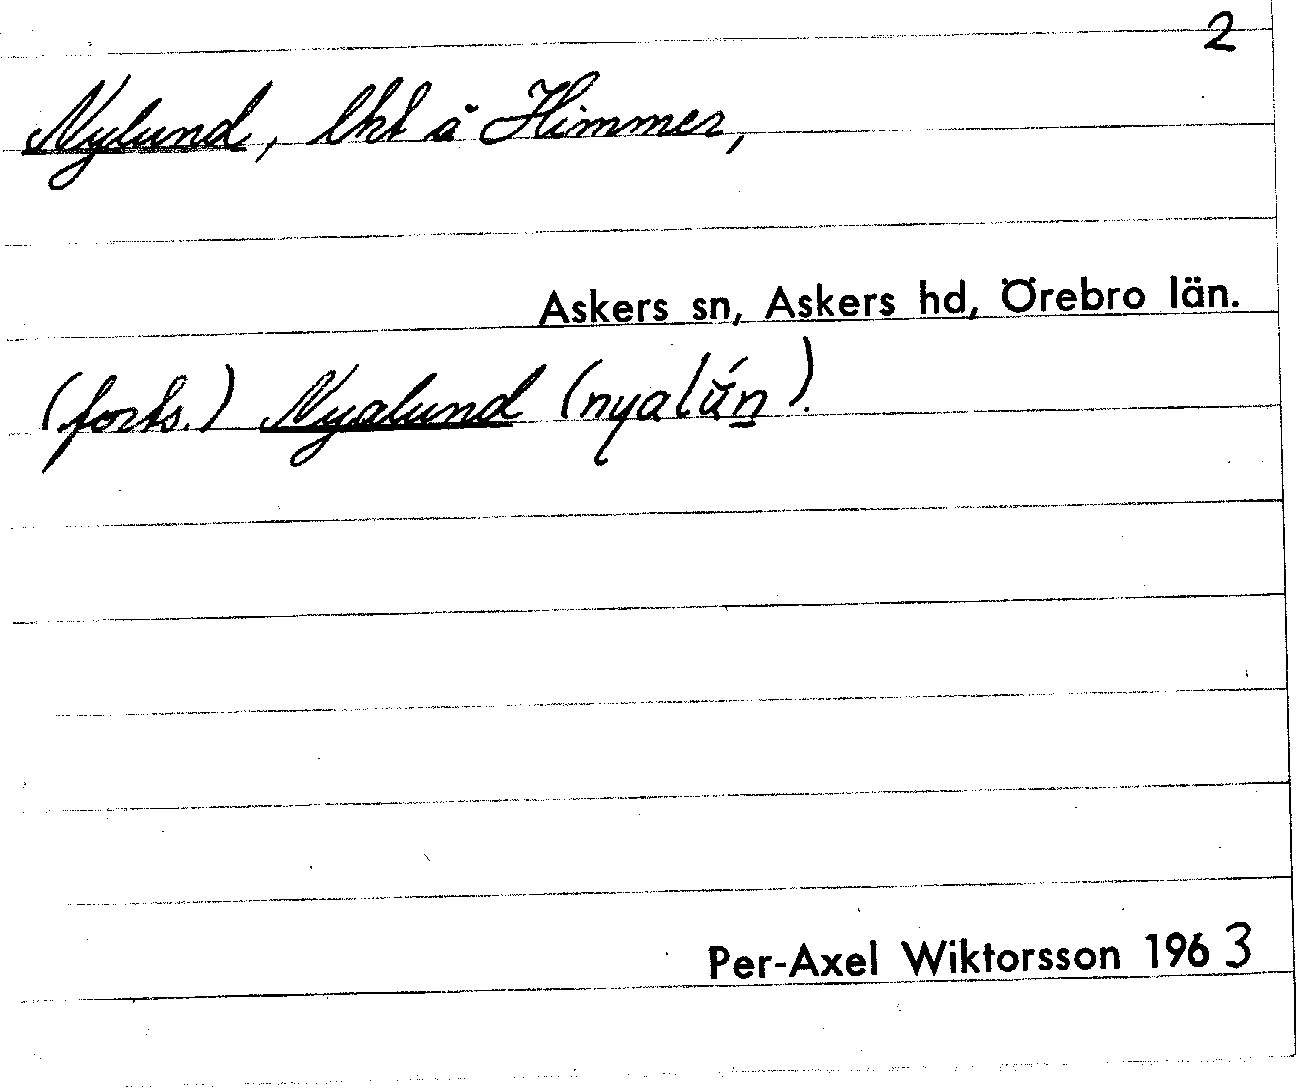 2
Nylund, lht å Himmer,
Askers sn, Askers hd, Örebro län.
(forts.) Nyalund (nyalún).
Per-Axel Wiktorsson 1963